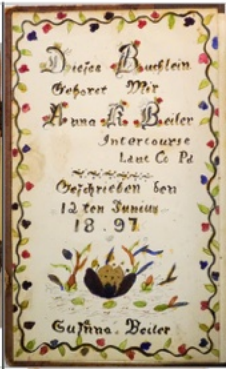 Dieses Buchlein
Gehoret Mir
Anna K Beiler
Intercourse
Lanc Co Pa
Geschrieben den
12 ten Junius
18.97
Susanna. Beiler